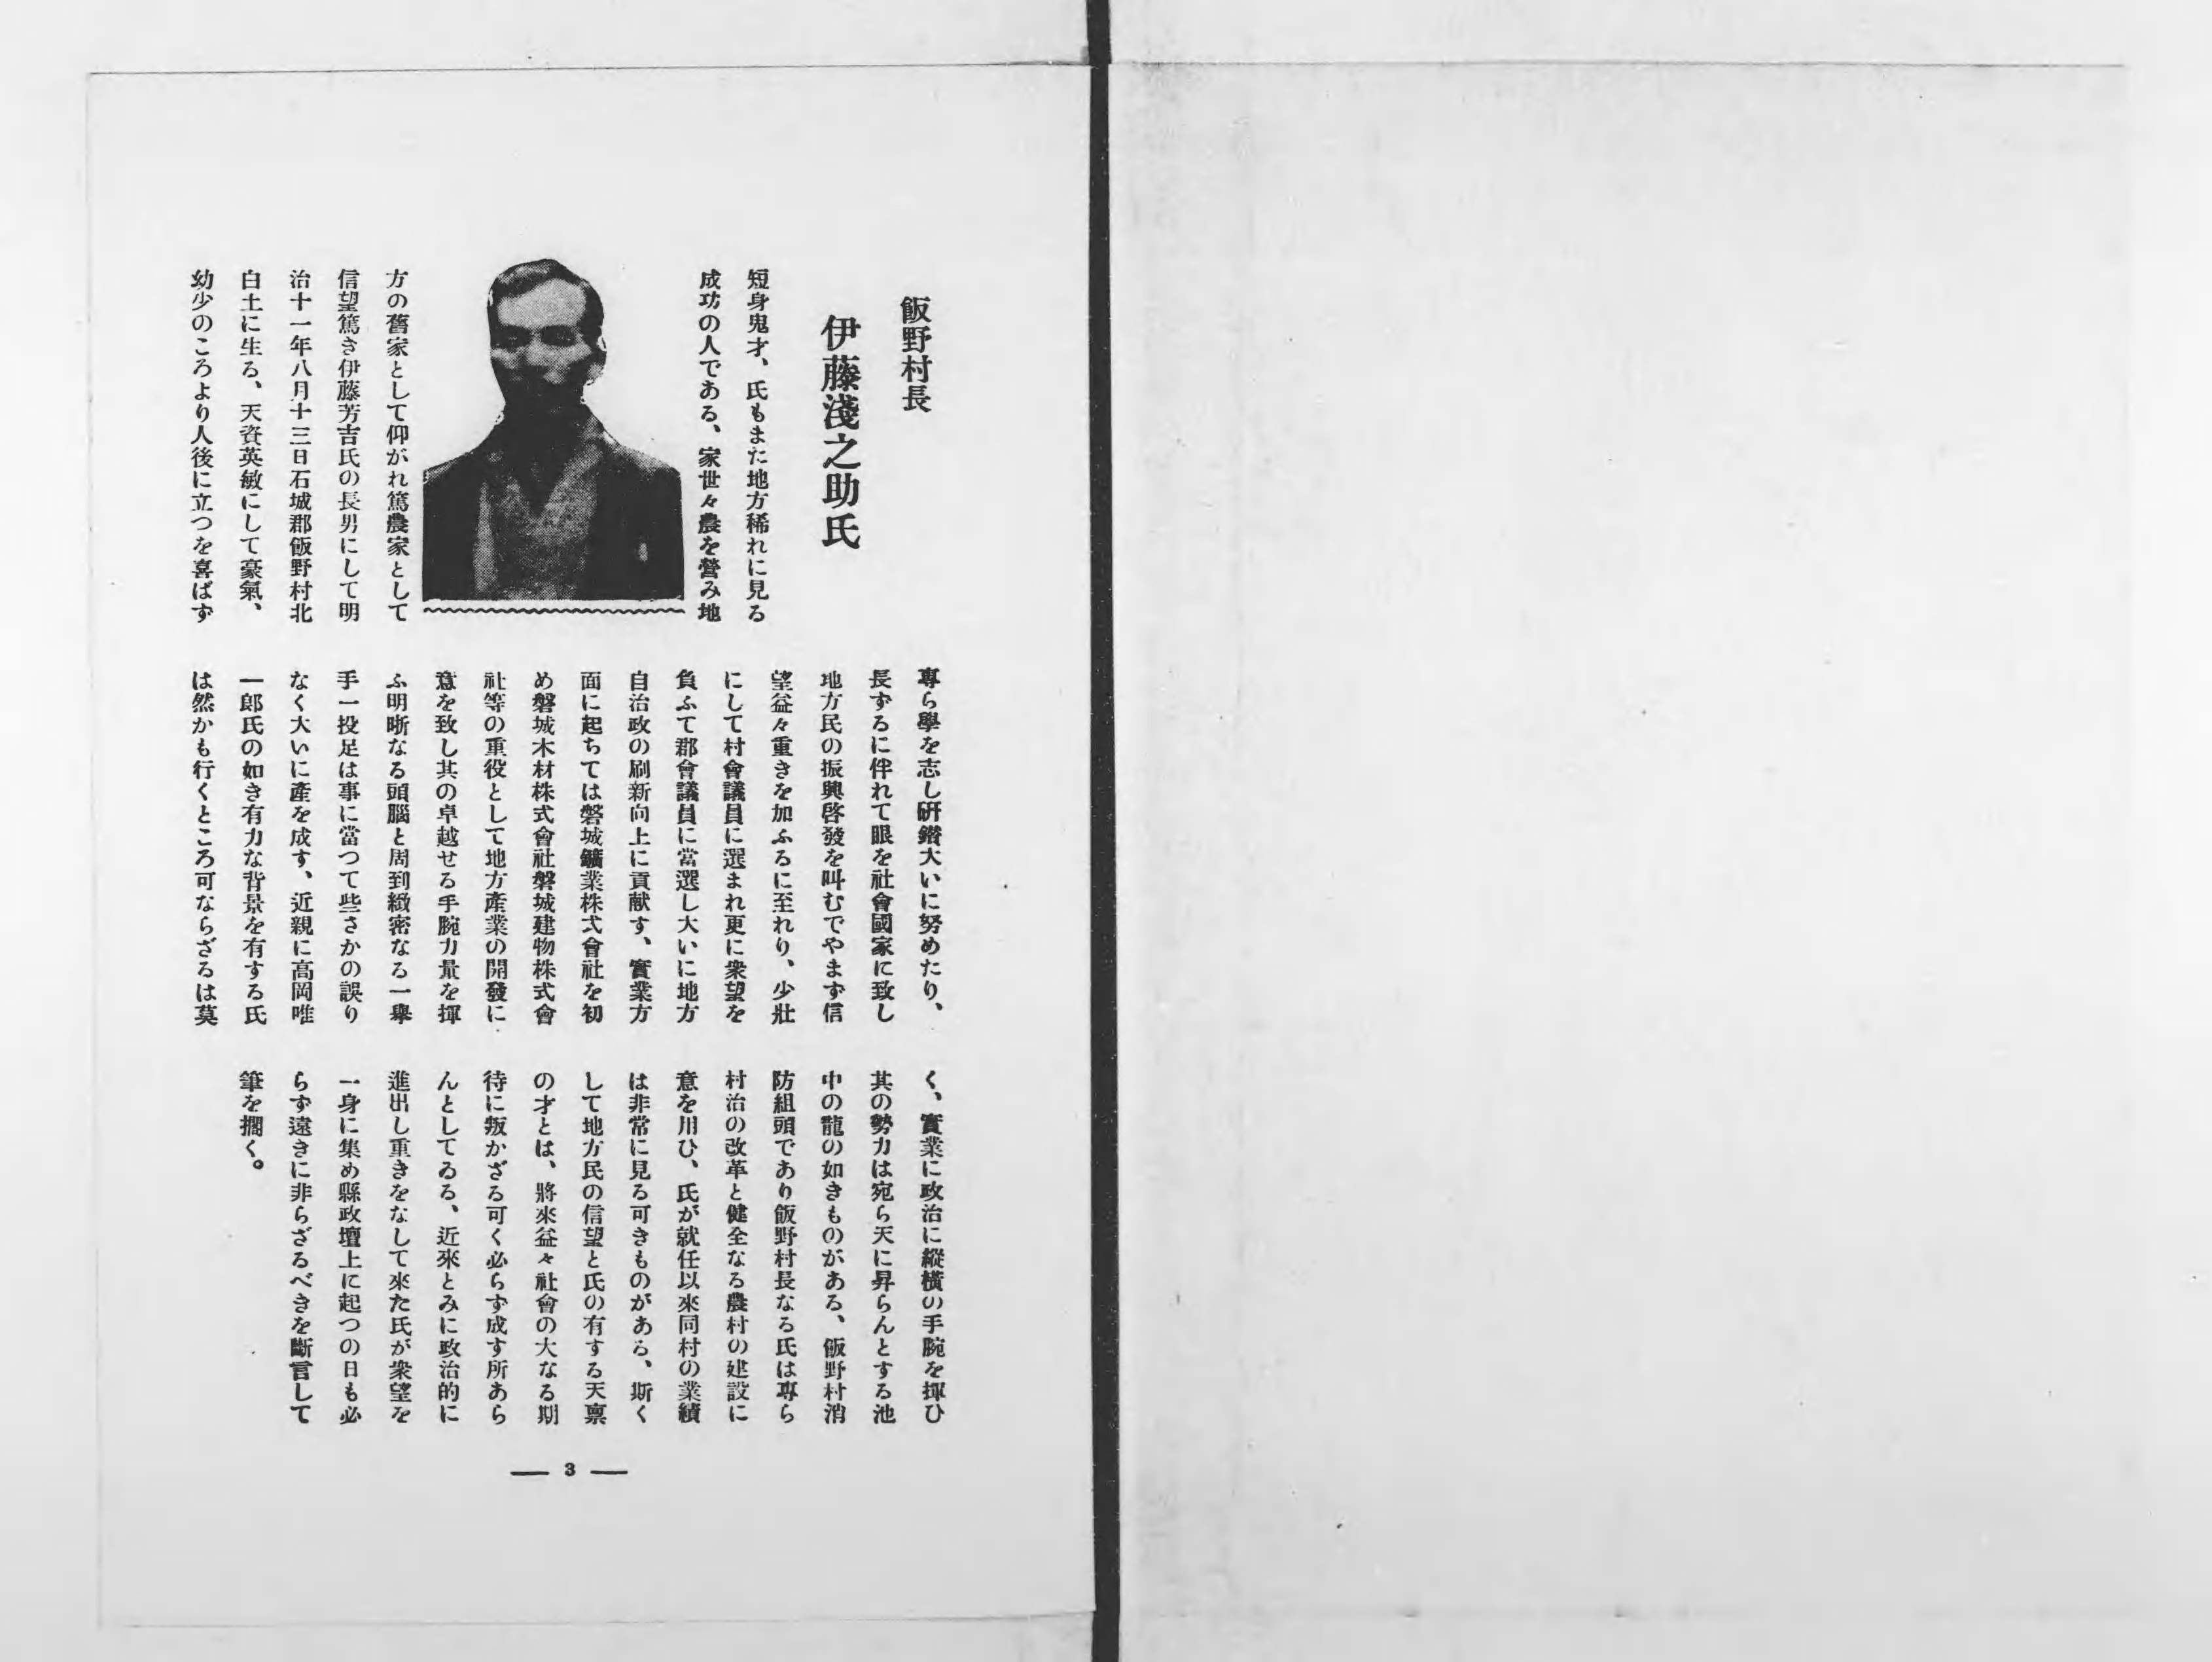 飯野村長
伊藤淺之助氏
短身鬼才、氏もまた地方稀れに見る
成功の人である、家世々農を營み地
方の舊家として仰がれ篤農家として
信望篤き伊藤芳吉氏の長男にして明
治十一年八月十三日石城郡飯野村北
白土に生る、天資英敏にして豪氣、
幼少のころより人後に立つを喜ばず
專ら學を志し硏鑽大いに努めたり、
長ずるに伴れて眼を社會國家に致し
地方民の振興啓發を叫むでやまず信
望益々重きを加ふるに至れり、少壯
にして村會議員に選まれ更に衆望を
負ふて郡會議員に當選し大いに地方
自治政の刷新向上に貢献す、實業方
面に起ちては磐城鑛業株式會社を初
め磐城木材株式會社磐城建物株式會
社等の重役として地方產業の開發に
意を致し其の卓越せる手腕力量を揮
ふ明晰なる頭腦と周到緻密なる一擧
手一投足は事に當つて些さかの誤り
なく大いに產を成す、近親に高岡唯
一郎氏の如き有力な背景を有する氏
は然かも行くところ可ならざるは莫
く、實業に政治に縱橫の手腕を揮ひ
其の勢力は宛ら天に昇らんとする池
中の龍の如きものがある、飯野村消
防組頭であり飯野村長なる氏は專ら
村治の改革と健全なる農村の建設に
意を用ひ、氏が就任以來同村の業績
は非常に見る可きものがある、斯く
して地方民の信望と氏の有する天禀
の才とは、將來益々社會の大なる期
待に叛かざる可く必らず成す所あら
んとしてゐる、近來とみに政治的に
進出し重きをなして來た氏が衆望を
一身に集め縣政壇上に起つの日も必
らず遠きに非らざるべきを斷言して
筆を擱く。
— 3 —